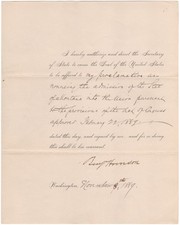 I hereby authorize and direct the Secretary
of State to cause the Seal of the United States
to be affixed to my proclamation an-
nouncing the admission of the State
of Montana into the Union pursuant
to the provisions of the act of Congress
approved February 22, 1889.
dated this day, and signed by me, and for so doing
this shall be his warrant.
Benj Harrison
Washington, November 8th 1889.